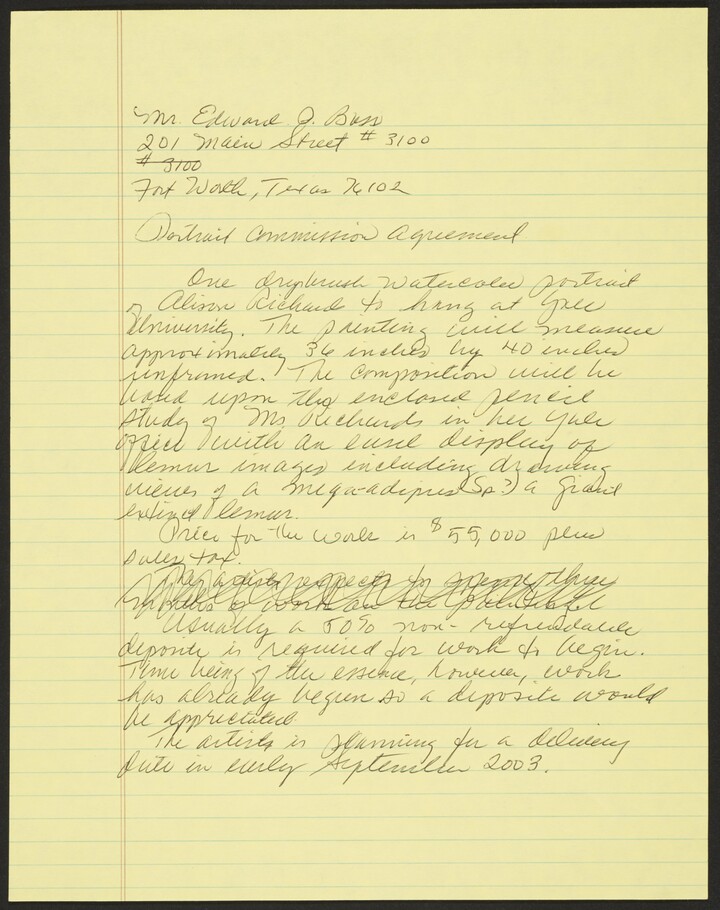 Mr. Edward J. Bass
201 Main Street # 3100
# 3100
Fort Worth, Texas 76102
Portrait Commission Agreement
One drybrush watercolor portrait
of Alison Richard to hang at Yale
University. The painting will measure
approximately 36 inches by 40 inches
unframed. The composition will be
based upon the enclosed pencil
study of Ms Richards in her Yale
office with an easel display of
lemur images including drawing
views of a mega-adipis (Sp?) a giant
extinct lemur.
Price for the work is $55,000 plus
sales tax.
The artist expects to spend three
months of work on the
Usually a 50% non-refundable
deposite is required for work to begin.
Time being of the essence, however, work
has already begun so a deposite would
be appreciated
The artists is planning for a delivery
date in early September 2003.